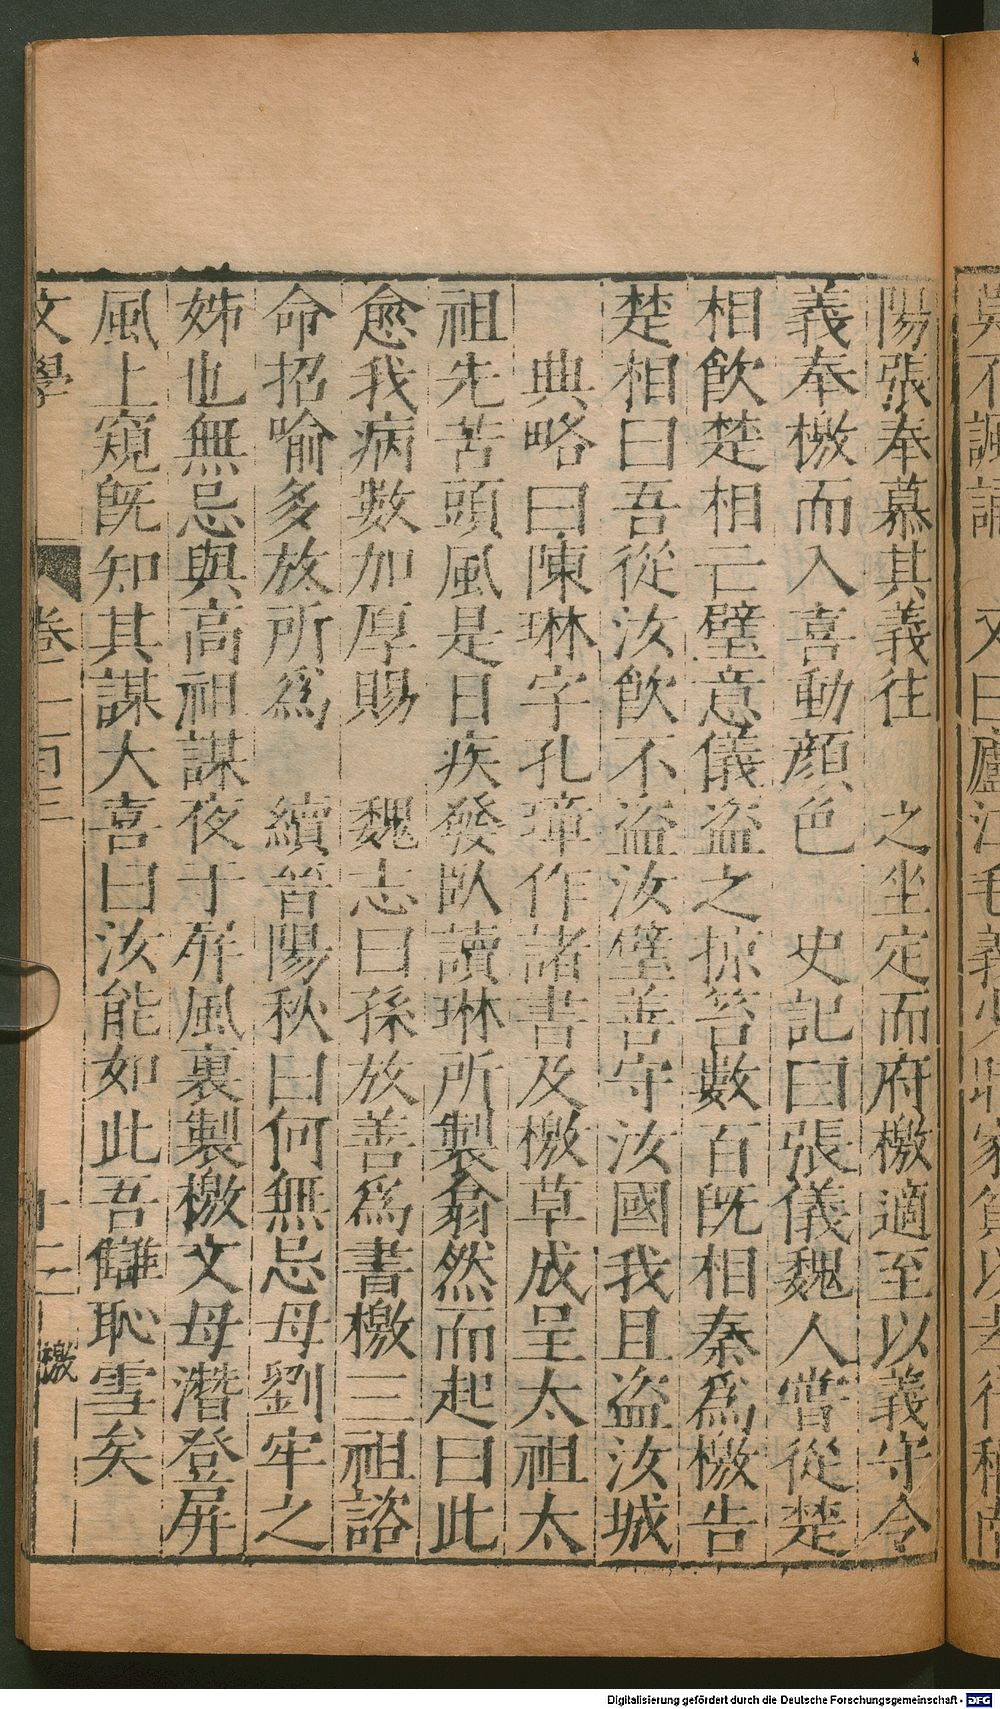 陽張奉慕其義往 之坐定而府檄適至以義守令
義奉檄而入喜動顔色 史記曰張儀魏人嘗從楚
相飲楚相亡璧意儀盗之掠笞數百既相秦爲檄告
楚相曰吾從汝飲不盗汝璧善守汝國我且盗汝城
典略曰陳琳字孔璋作諸書及檄草成呈太祖太
祖先苦頭風是日疾發臥讀琳所製翕然而起曰此
愈我病數加厚賜 魏志曰孫放善爲書檄三祖詔
命招喻多放所爲 續晉陽秋曰何無忌母劉牢之
姊也無忌與高祖謀夜于屏風裏製檄文母潛登屏
風上窺既知其謀大喜曰汝能如此吾讎恥雪矣
文學 卷二百三 十二 檄
Digitalisierung gefördert durch die Deutsche Forschungsgemeinschaft - DFG